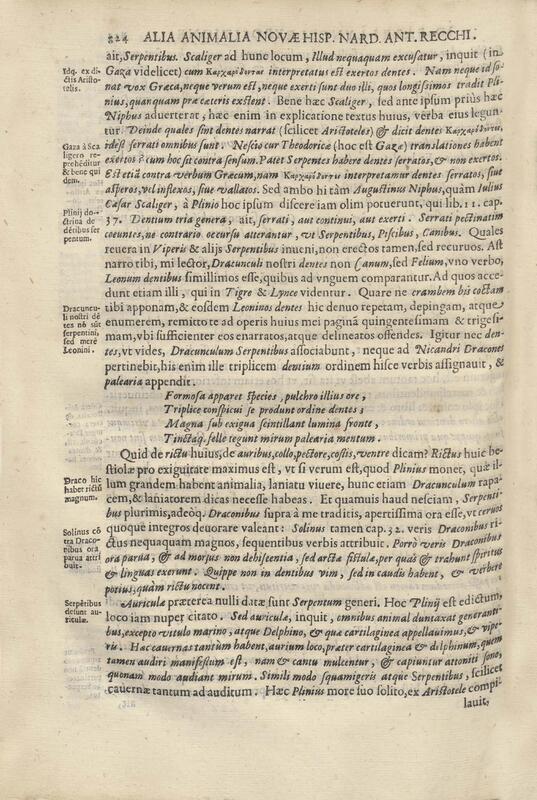 824 ALIA ANIMALIA NOVÆ HISP. NARD. ANT. RECCHI.
ait, Serpentibus. Scaliger ad hunc locum, Illud nequaquam excusatur, inquit (in
Gaza videlicet) cum Καρχαρόδοντα interpretatus est exertos dentes. Nam neque id so-
nat vox Græca, neque verum est, neque exerti sunt duo illi, quos longissimos tradit Pli-
nius, quanquam præ cæteris exstent. Bene hæc Scaliger, sed ante ipsum prius hæc
Niphus aduerterat, hæc enim in explicatione textus huius, verba eius legun-
tur. Deinde quales sint dentes narrat (scilicet Aristoteles) & dicit dentes Καρχαρόδοντα,
idest serrati omnibus sunt. Nescio cur Theodoricæ (hoc est Gazæ) translationes habent
exertos? cum hoc sit contra sensum. Patet Serpentes habere dentes serratos, & non exertos.
Est etiã contra verbum Græcum, nam Καρχαρόδοντα interpretamur dentes serratos, siue
asperos, vel inflexos, siue vallatos. Sed ambo hi tàm Augustinus Niphus, quàm Iulius
Cæsar Scaliger, à Plinio hoc ipsum discere iam olim potuerunt, qui lib. 11. cap.
37. Dentium tria genera, ait, serrati, aut continui, aut exerti. Serrati pectinatim
coeuntes, ne contrario occursu atterantur, vt Serpentibus, Piscibus, Canibus. Quales
reuera in Viperis & alijs Serpentibus inueni, non erectos tamen, sed recuruos. Ast
narro tibi, mi lector, Dracunculi nostri dentes non Canum, sed Felium, vno verbo,
Leonum dentibus simillimos esse, quibus ad vnguem comparantur. Ad quos acce-
dunt etiam illi, qui in Tigre & Lynce videntur. Quare ne crambem bis coctam
tibi apponam, & eosdem Leoninos dentes hic denuo repetam, depingam, atque
enumerem, remitto te ad operis huius mei paginã quingentesimam & trigesi-
mam, vbi sufficienter eos enarratos, atque delineatos offendes. Igitur nec den-
tes, vt vides, Dracunculum Serpentibus associabunt, neque ad Nicandri Dracones
pertinebit, his enim ille triplicem dentium ordinem hisce verbis assignauit, &
palearia appendit.
Formosa apparet species, pulchro illius ore,
Triplice conspicui se produnt ordine dentes;
Magna sub exigua scintillant lumina fronte,
Tinctaq. felle tegunt mirum palearia mentum.
Quid de rictu huius, de auribus, collo, pectore, costis, ventre dicam? Rictus huic be-
stiolæ pro exiguitate maximus est, vt si verum est, quod Plinius monet, quæ il-
lum grandem habent animalia, laniatu viuere, hunc etiam Dracunculum rapa-
cem, & laniatorem dicas necesse habeas. Et quamuis haud nesciam, Serpenti-
bus plurimis, adeòq. Draconibus supra à me traditis, apertissima ora esse, vt ceruos
quoque integros deuorare valeant: Solinus tamen cap. 32. veris Draconibus ri-
ctus nequaquam magnos, sequentibus verbis attribuit. Porrò veris Draconibus
ora parua, & ad morsus non dehiscentia, sed arcta fistula, per quas & trahunt spiritus
& linguas exerunt. Quippe non in dentibus vim, sed in caudis habent, & verbere
potius, quàm rictu nocent.
Auriculæ præterea nulli datæ sunt Serpentum generi. Hoc Plinij est edictum,
loco iam nuper citato. Sed auriculæ, inquit, omnibus animal duntaxat generanti-
bus, excepto vitulo marino, atque Delphino, & quæ cartilaginea appellauimus, & vipe-
ris. Hæc cauernas tantùm habent, aurium loco, præter cartilaginea & delphinum, quem
tamen audiri manifestum est, nam & cantu mulcentur, & capiuntur attoniti sono,
quonam modo audiant mirum. Simili modo squamigeris atque Serpentibus, scilicet
cauernæ tantum ad auditum. Hæc Plinius more suo solito, ex Aristotele compi-
lauit,
Idq. ex di-
ctis Aristo-
telis.
Gaza à Sca
ligero re-
prehēditur
& bene qui
dem.
Plinij do-
ctrina de
dētibus ser
pentum.
Dracuncu-
li nostri dē
tes nō sūt
serpentini,
sed merè
Leonini.
Draco hic
habet rictū
magnum.
Solinus cō
tra Draco-
nibus ora
parua attri
buit.
Serpētibus
desunt au-
riculæ.